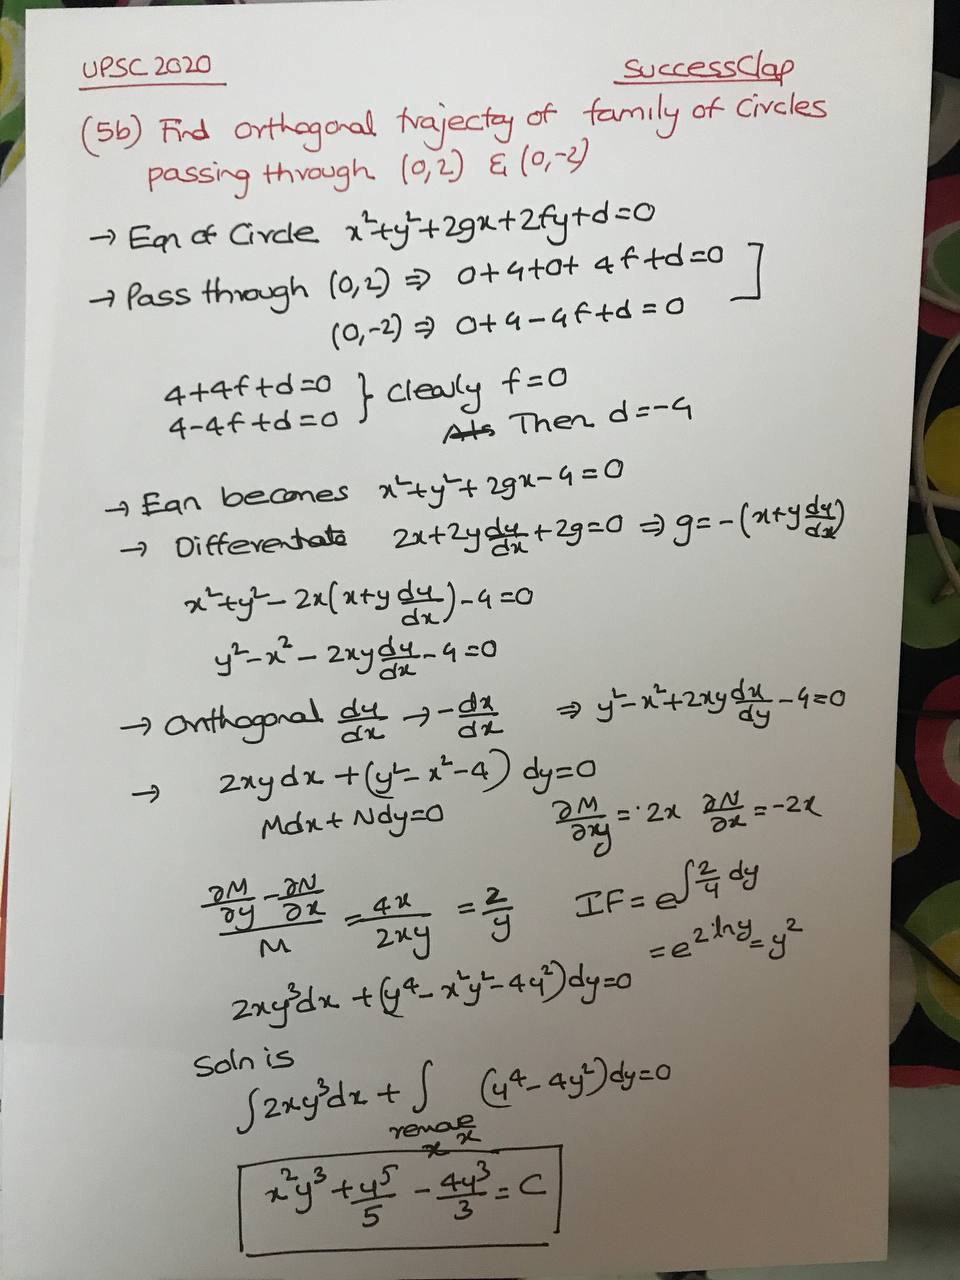 UPSC 2020
SuccessClap
(5b) Find orthogonal trajectoy of family of Circles
passing through (0,2) & (0,-2)
→ Eqn of Circle x²+y²+2gx+2fy+d=0
→ Pass through (0,2) ⇒ 0+4+0+4f+d=0
(0,-2) ⇒ 0+4-4f+d=0
4+4f+d=0
4-4f+d=0 } Clearly f=0
Then d=-4
→ Eqn becomes x²+y²+2gx-4=0
→ Differentiate 2x+2y dy/dx+2g=0 ⇒ g=-(x+y dy/dx)
x²+y²-2x(x+y dy/dx)-4=0
y²-x²-2xy dy/dx-4=0
→ Orthogonal dy/dx → -dx/dx ⇒ y²-x²+2xy dx/dy-4=0
→ 2xydx+(y²-x²-4) dy=0
Mdx+Ndy=0 ∂M/∂y=2x ∂N/∂x=-2x
(∂M/∂y-∂N/∂x)/M=4x/2xy=2/y IF=e^∫2/y dy
=e^2 lny=y²
2xy³dx+(y⁴-x²y²-4y²)dy=0
Soln is
∫2xy³dx+∫ (y⁴-4y²)dy=0
remove x
x²y³+y⁵/5-4y³/3=C